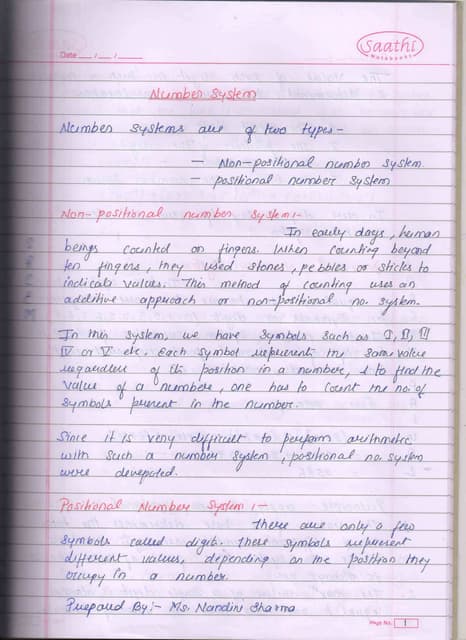 Saathi
Notebooks
Date __/__/__
Number System
Number systems are of two types-
— Non-positional number system.
— positional number system
Non-positional number system:-
In early days, human
beings counted on fingers. When counting beyond
ten fingers, they used stones, pebbles or sticks to
indicate values. This method of counting uses an
additive approach or non-positional no. system.
In this system, we have symbols such as I, II, III
IV or V etc. Each symbol represents the same value
regardless of its position in a number, & to find the
value of a numbers, one has to count the no. of
symbols present in the number.
Since it is very difficult to perform arithmetic
with such a number system, positional no. system
were deveploed.
Positional Number System:-
There are only a few
symbols called digit. These symbols represent
different values, depending on the position they
occupy in a number.
Prepared By:- Ms. Nandini Sharma
Page No. 1